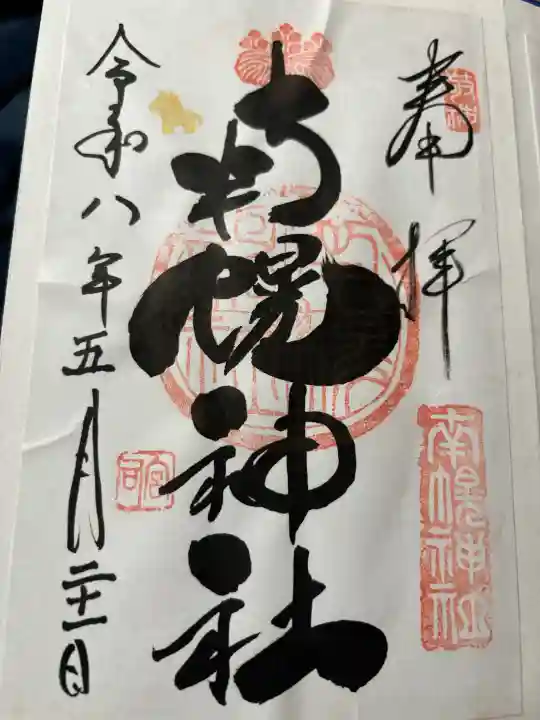 奉拝
南幌神社
南幌神社
宮司
令和八年五月二十一日